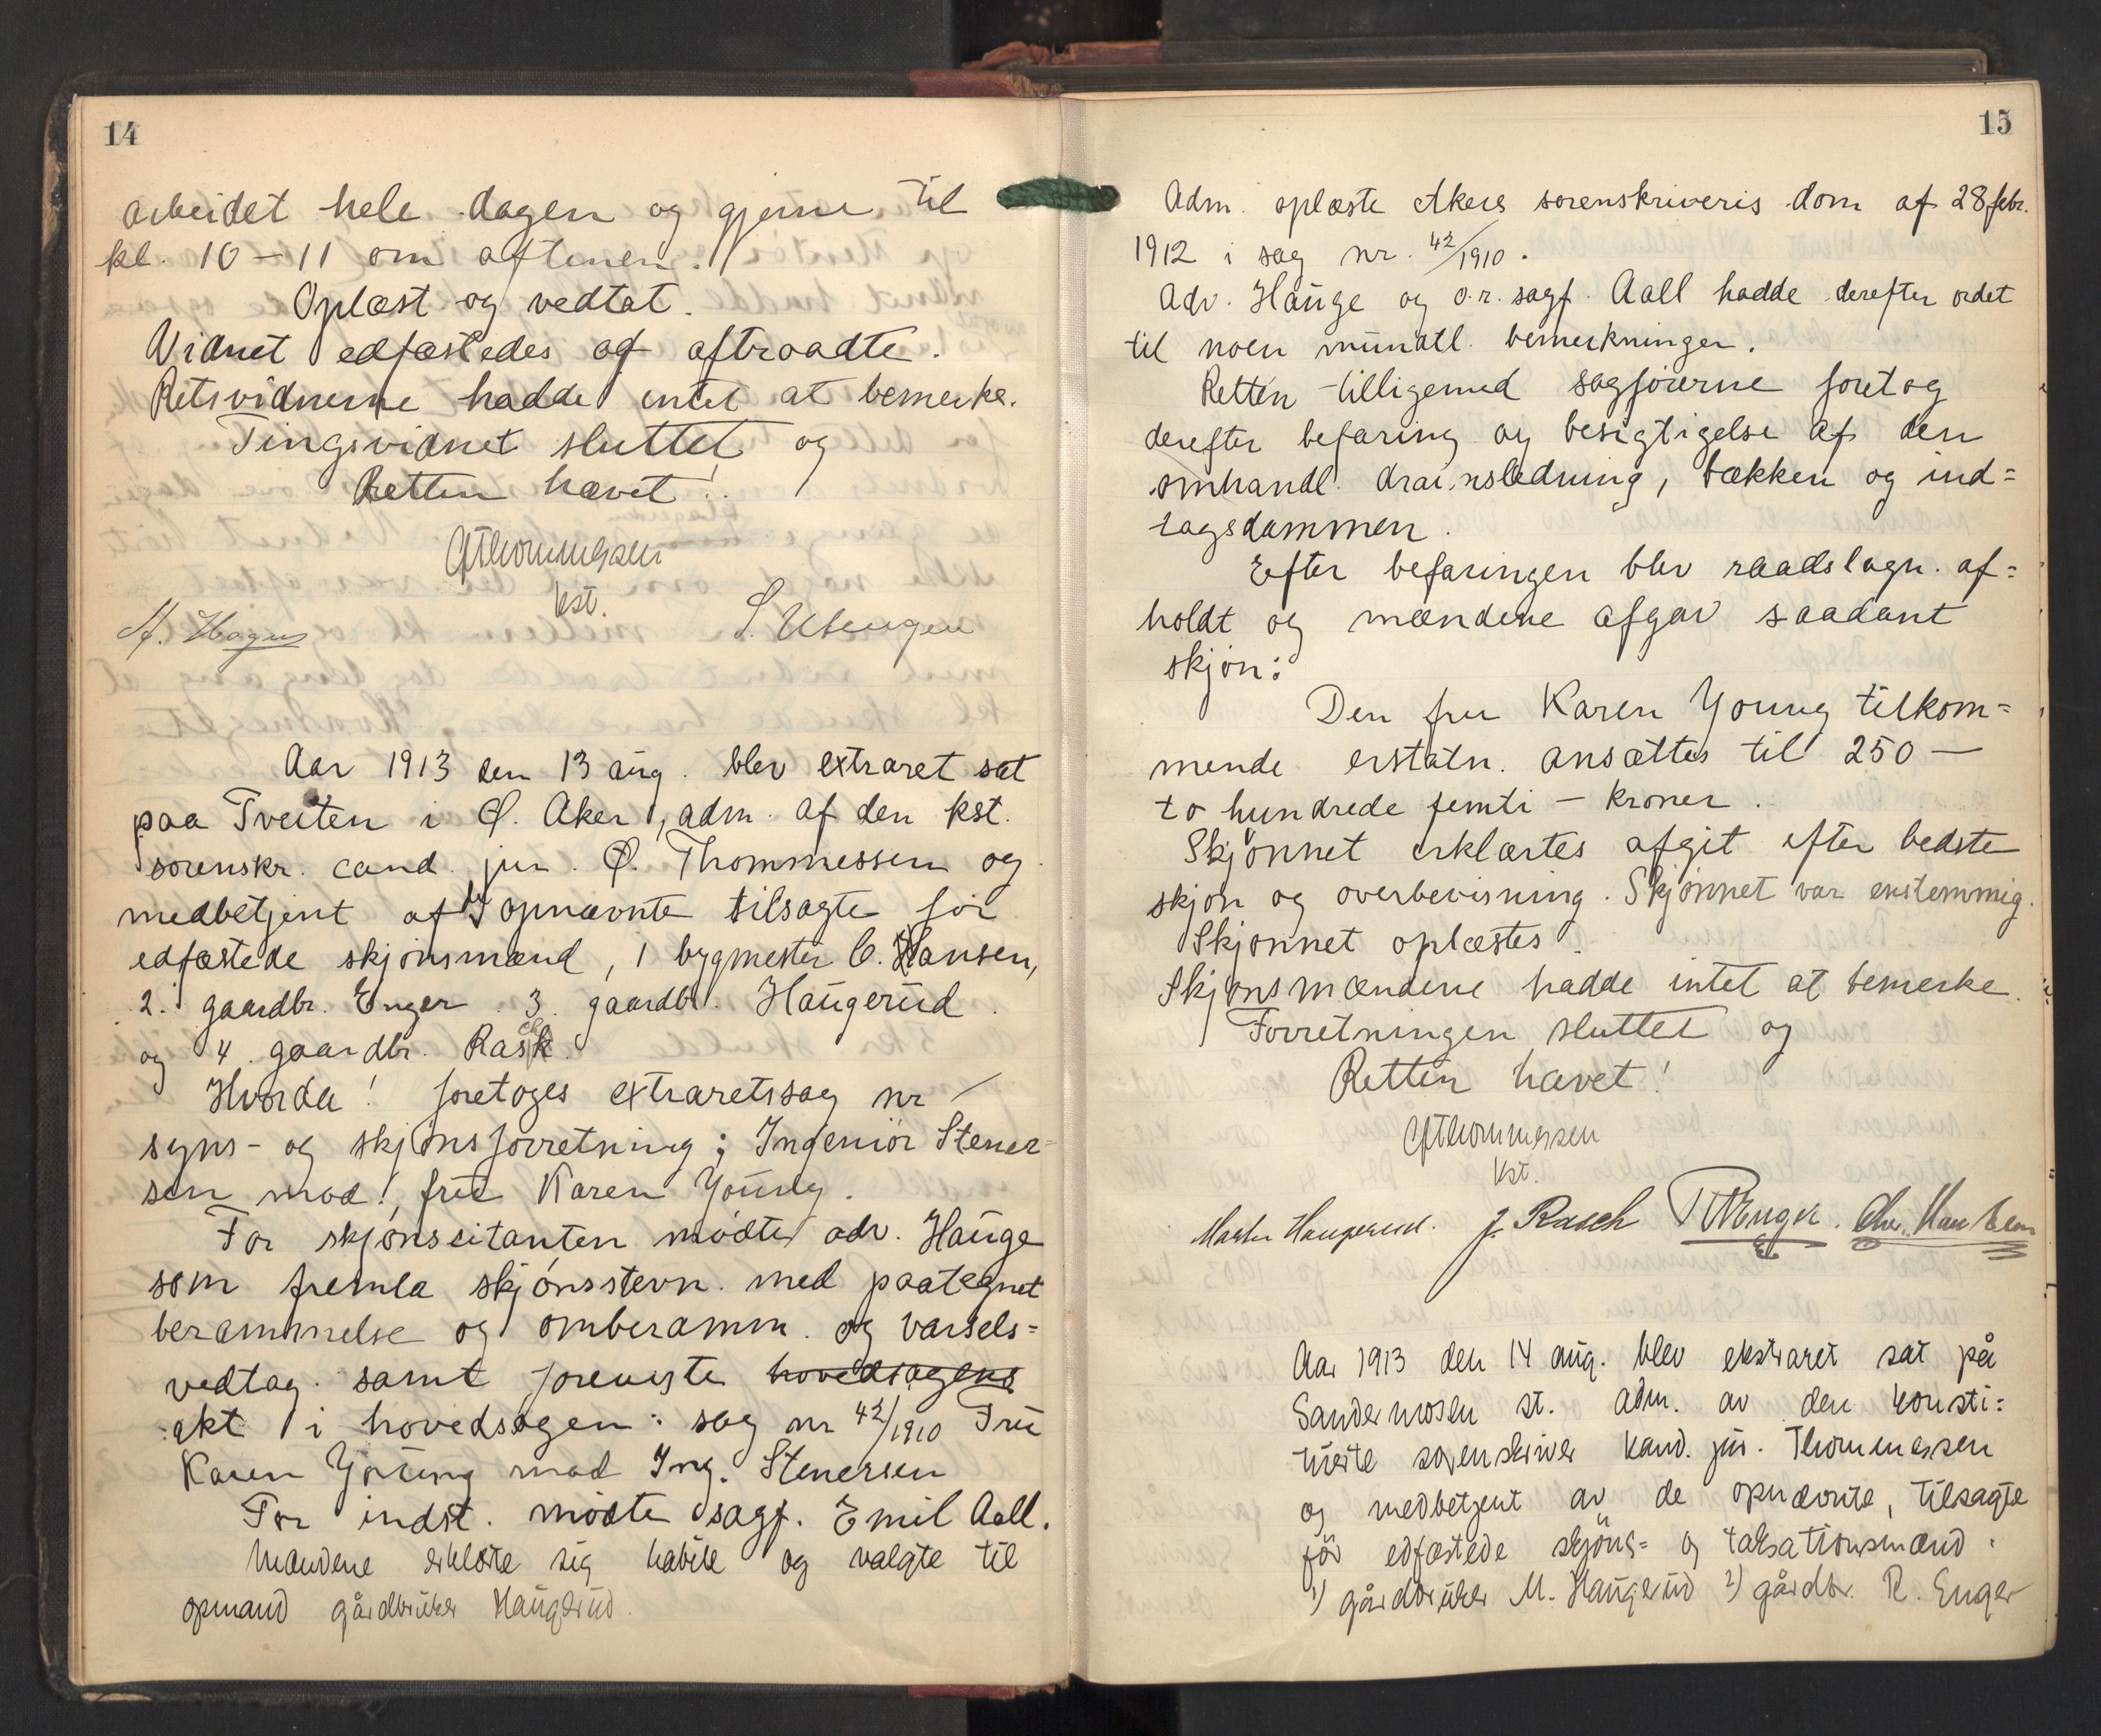 14
arbeidet hele dagen og gjerne til
kl. 10-11 om aftenen.
Oplæst og vedtat.
Vidnet edfæstedes og aftraadte.
Retsvidnerne hadde intet at bemerke.
Tingsvidnet sluttet og
Retten hævet!
Thommessen
kst.
A. Hagen S. Utengen
Aar 1913 den 13 aug. blev extraret sat
paa Tveiten i Ø. Aker, adm. af den kst.
sorenskr. cand. jur. Ø. Thommessen og
medbetjent af de opnævnte tilsagte før
edfæstede skjønsmænd, 1 bygmester C. Hansen,
2. gaardbr. Enger 3. gaardbr. Haugerud
og 4. gaardbr. Rasch.
Hvorda! foretoges extraretssag nr —
syns- og skjønsforretning; Ingeniør Stener-
sen mod! frue Karen Young.
For skjønscitanten mødte adv. Hauge
som fremla skjønsstevn. med paategnet
berammelse og omberamm. og varsels=
vedtag. samt foreviste hovedsagens
akt i hovedsagen: sag nr 42/1910 Frue
Karen Young mod Ing. Stenersen
For indst. mødte sagf. Emil Aall.
Mændene erklærte sig habile og valgte til
opmand gårdbruker Haugerud.
15
Adm. oplæste Akers sorenskriveris dom af 28 febr.
1912 i sag nr. 42/1910.
Adv. Hauge og o.r. sagf. Aall hadde derefter ordet
til noen mundtl. bemerkninger.
Retten tilligemed sagførerne foretog
derefter befaring og besigtigelse af den
omhandl. drainsledning, bækken og ind=
tagsdammen.
Efter befaringen blev raadslagn. af=
holdt og mændene afgav saadant
skjøn:
Den fru Karen Young tilkom=
mende erstatn. ansættes til 250 —
to hundrede femti — kroner.
Skjønnet erklærtes afgit efter bedste
skjøn og overbevisning. Skjønnet var enstemmig.
Skjønnet oplæstes.
Skjønsmændene hadde intet at bemerke.
Forretningen sluttet og
Retten hævet!
Thommessen
kst.
Martin Haugerud. J. Rasch R Enger. Chr. Hansen
Aar 1913 den 14 aug. blev ekstraret sat på
Sandermosen st. adm. av den konsti=
tuerte sorenskriver kand. jur. Thommessen
og medbetjent av de opnævnte, tilsagte
før edfæstede skjøns= og taksationsmænd:
1) gårdbruker M. Haugerud 2) gårdbr. R. Enger